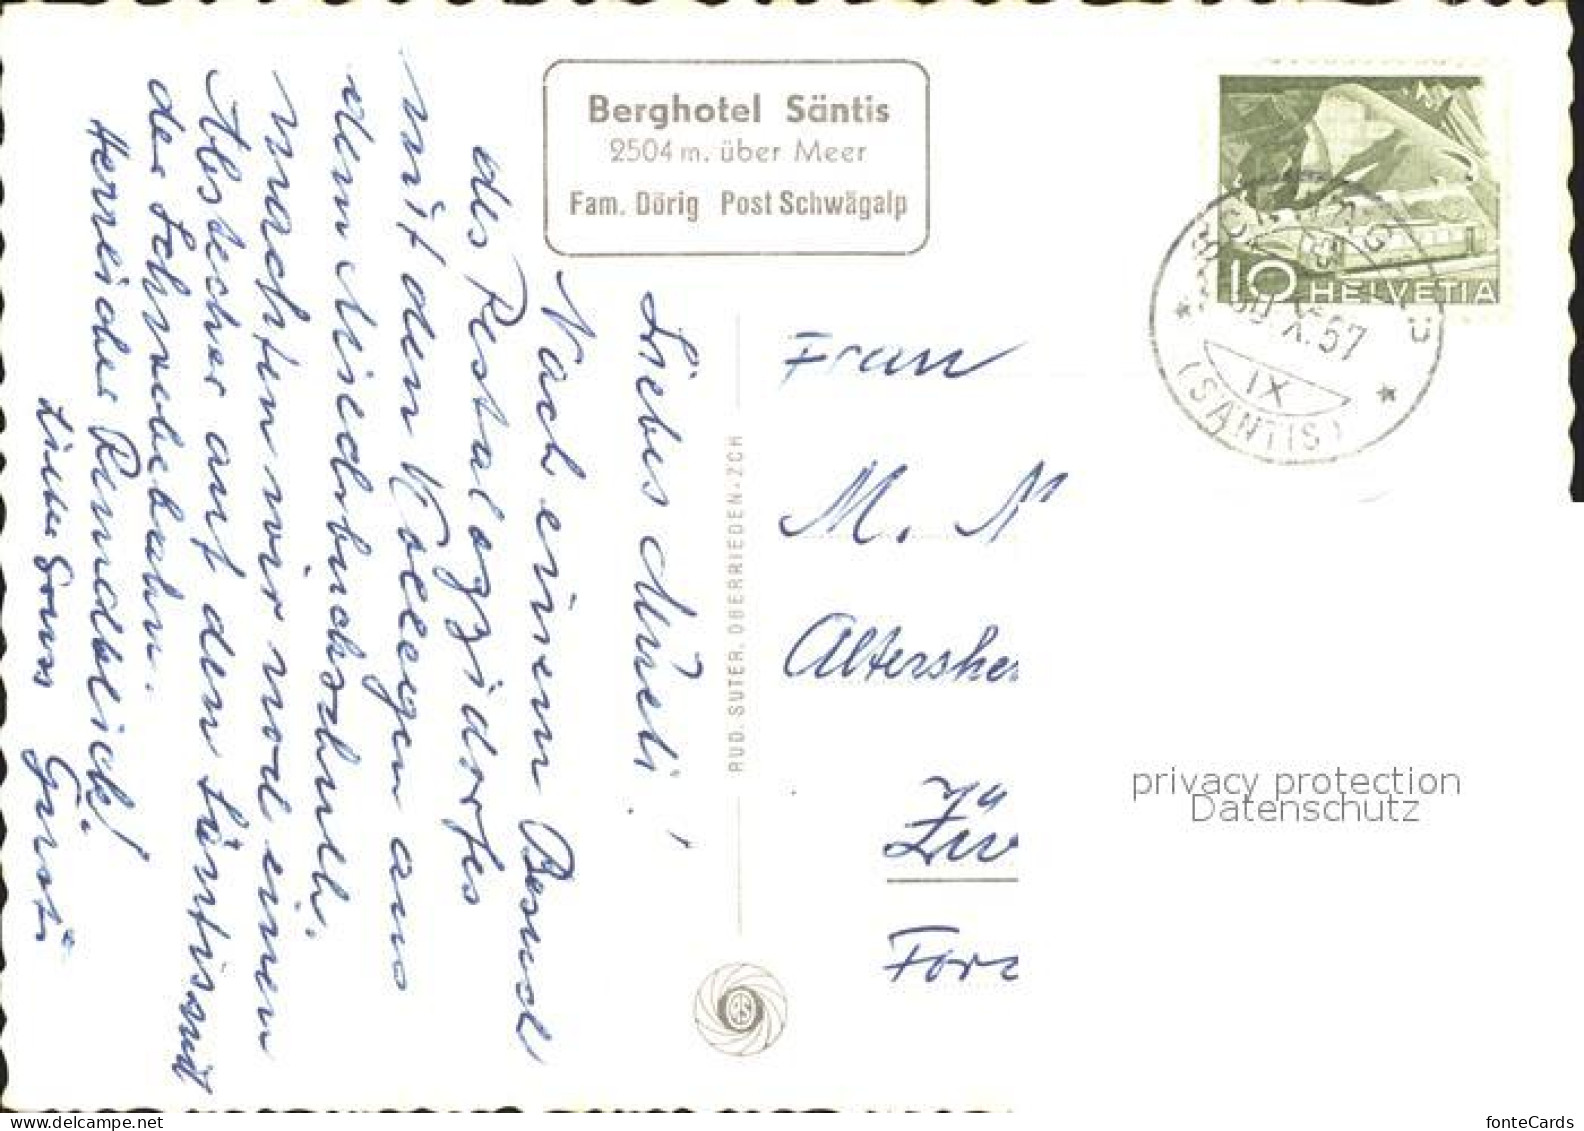 Berghotel Säntis
2504 m. über Meer
Fam. Dörig Post Schwägalp
10 HELVETIA
X.57
IX
* (SÄNTIS) *
Liebes Müeti!
Nach einem Besuch
des Pestalozzidorfes
mit den Kollegen aus
dem Niederbuchschule.
machten wir noch einen
Abstecher auf den Säntis mit
der Schwebebahn.
Herrlicher Rundblick!
Liebe Gruss Gusti
RUD. SUTER, OBERRIEDEN-ZCH
RS
Frau
M. M
Altershe
Zü
Forc
privacy protection
Datenschutz
fonteCards